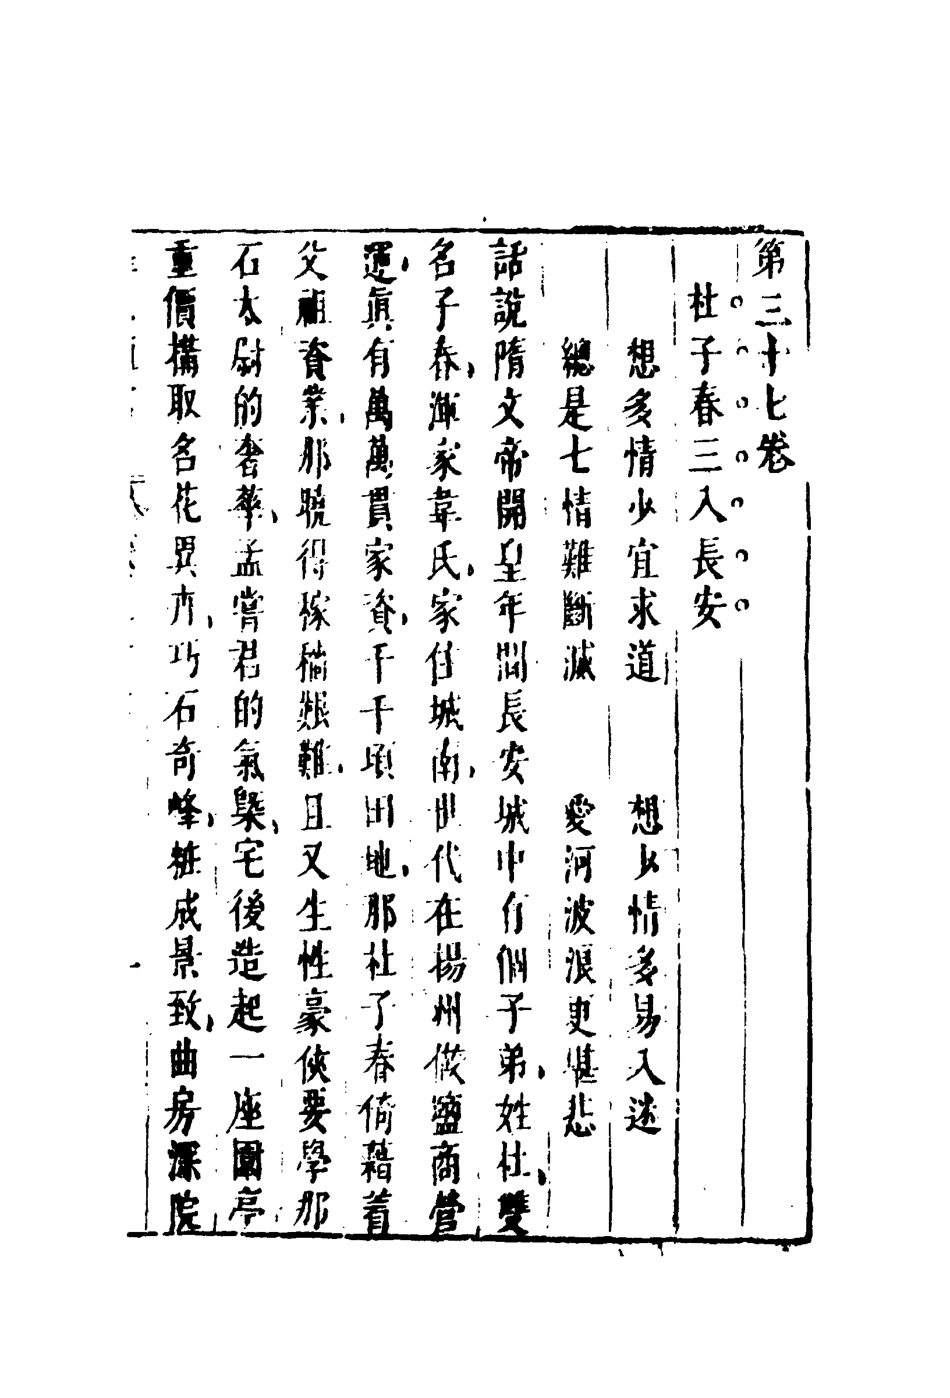 第三十七卷
杜子春三入長安
想多情少宜求道　想少情多易入迷
總是七情難斷滅　愛河波浪更堪悲
話說隋文帝開皇年間長安城中有個子弟、姓杜、雙
名子春、渾家韋氏、家住城南、世代在揚州做鹽商營
運、眞有萬萬貫家資、千千頃田地、那杜子春倚藉着
父祖資業、那曉得稼穡艱難、且又生性豪俠要學那
石太尉的奢華、孟嘗君的氣槩、宅後造起一座園亭
重價搆取名花異卉、巧石奇峰、粧成景致、曲房深院